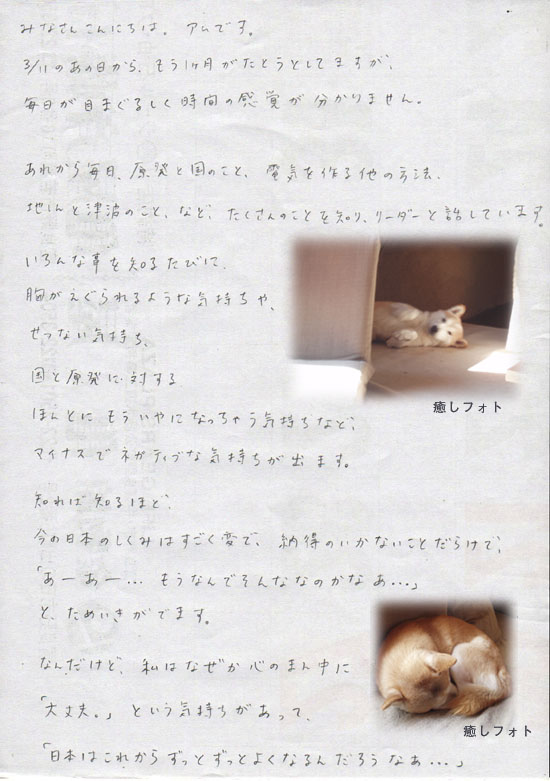 みなさんこんにちは。アムです。
3/11のあの日から、もう1ヶ月がたとうとしてますが、
毎日が目まぐるしく時間の感覚が分かりません。
あれから毎日、原発と国のこと、電気を作る他の方法、
地しんと津波のこと、など、たくさんのことを知り、リーダーと話しています。
いろんな事を知るたびに、
胸がえぐられるような気持ちや、
せつない気持ち、
国と原発に対する
ほんとにもういやになっちゃう気持ちなど、
マイナスでネガティブな気持ちが出ます。
癒しフォト
知れば知るほど、
今の日本のしくみはすごく変で、納得のいかないことだらけで、
「あーあー…もうなんでそんななのかなあ…」
と、ためいきがでます。
なんだけど、私はなぜか心のまん中に
「大丈夫。」という気持ちがあって、
癒しフォト
「日本はこれからずっとずっとよくなるんだろうなあ…」